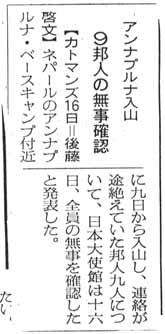 アンナプルナ入山
9邦人の無事確認
【カトマンズ16日=後藤
啓文】ネパールのアンナプ
ルナ・ベースキャンプ付近
に九日から入山し、連絡が
途絶えていた邦人九人につ
いて、日本大使館は十六
日、全員の無事を確認した
と発表した。